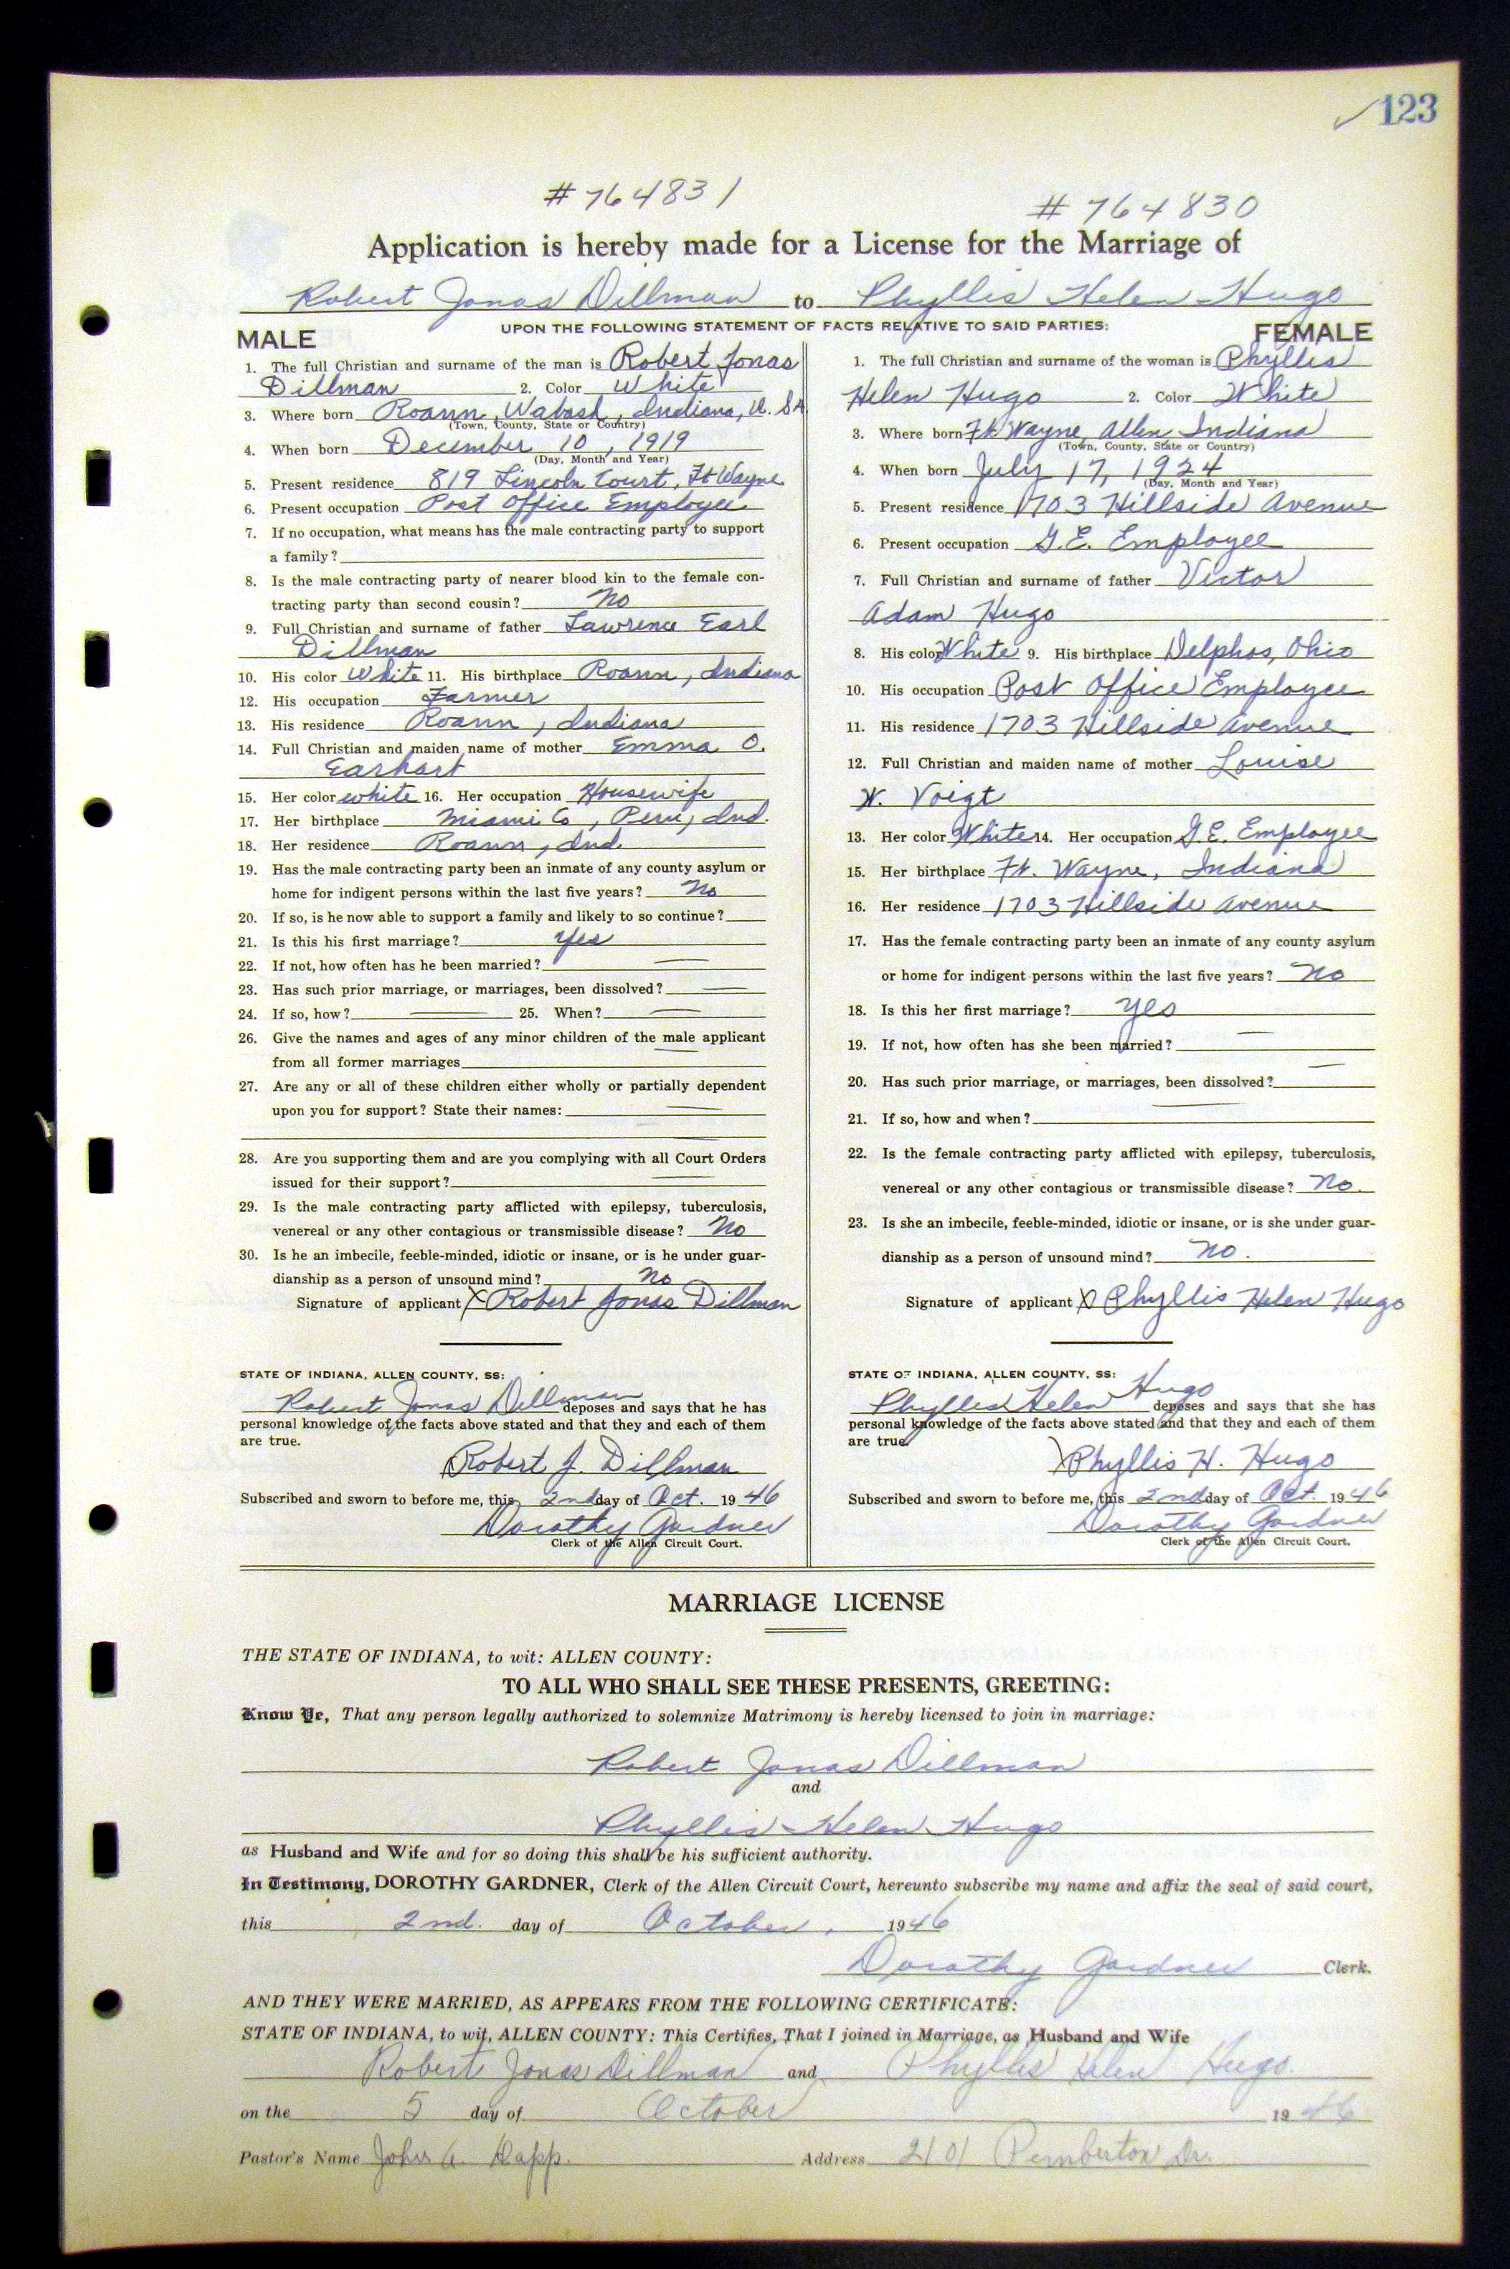 123
#764831
#764830
Application is hereby made for a License for the Marriage of
Robert Jonas Dillman to Phyllis Helen Hugo
UPON THE FOLLOWING STATEMENT OF FACTS RELATIVE TO SAID PARTIES:
MALE
1. The full Christian and surname of the man is Robert Jonas
Dillman 2. Color White
3. Where born Roann, Wabash, Indiana, U.S.A.
(Town, County, State or Country)
4. When born December 10, 1919
(Day, Month and Year)
5. Present residence 819 Lincoln Court, Ft Wayne
6. Present occupation Post Office Employee
7. If no occupation, what means has the male contracting party to support
a family?
8. Is the male contracting party of nearer blood kin to the female con-
tracting party than second cousin? No
9. Full Christian and surname of father Lawrence Earl
Dillman
10. His color White 11. His birthplace Roann, Indiana
12. His occupation Farmer
13. His residence Roann, Indiana
14. Full Christian and maiden name of mother Emma O.
Earhart
15. Her color white 16. Her occupation Housewife
17. Her birthplace Miami Co, Peru, Ind.
18. Her residence Roann, Ind.
19. Has the male contracting party been an inmate of any county asylum or
home for indigent persons within the last five years? No
20. If so, is he now able to support a family and likely to so continue?
21. Is this his first marriage? Yes
22. If not, how often has he been married? —
23. Has such prior marriage, or marriages, been dissolved? —
24. If so, how? — 25. When? —
26. Give the names and ages of any minor children of the male applicant
from all former marriages —
27. Are any or all of these children either wholly or partially dependent
upon you for support? State their names: —
28. Are you supporting them and are you complying with all Court Orders
issued for their support? —
29. Is the male contracting party afflicted with epilepsy, tuberculosis,
venereal or any other contagious or transmissible disease? No
30. Is he an imbecile, feeble-minded, idiotic or insane, or is he under guar-
dianship as a person of unsound mind? No
Signature of applicant X Robert Jonas Dillman
STATE OF INDIANA, ALLEN COUNTY, SS:
Robert Jonas Dillman deposes and says that he has
personal knowledge of the facts above stated and that they and each of them
are true.
Robert J. Dillman
Subscribed and sworn to before me, this 2nd day of Oct. 1946
Dorothy Gardner
Clerk of the Allen Circuit Court.
FEMALE
1. The full Christian and surname of the woman is Phyllis
Helen Hugo 2. Color White
3. Where born Ft. Wayne, Allen Indiana
(Town, County, State or Country)
4. When born July 17, 1924
(Day, Month and Year)
5. Present residence 1703 Hillside Avenue
6. Present occupation G.E. Employee
7. Full Christian and surname of father Victor
Adam Hugo
8. His color White 9. His birthplace Delphos, Ohio
10. His occupation Post Office Employee
11. His residence 1703 Hillside Avenue
12. Full Christian and maiden name of mother Louise
W. Voigt
13. Her color White 14. Her occupation G.E. Employee
15. Her birthplace Ft. Wayne, Indiana
16. Her residence 1703 Hillside Avenue
17. Has the female contracting party been an inmate of any county asylum
or home for indigent persons within the last five years? No
18. Is this her first marriage? Yes
19. If not, how often has she been married? —
20. Has such prior marriage, or marriages, been dissolved? —
21. If so, how and when? —
22. Is the female contracting party afflicted with epilepsy, tuberculosis,
venereal or any other contagious or transmissible disease? No.
23. Is she an imbecile, feeble-minded, idiotic or insane, or is she under guar-
dianship as a person of unsound mind? No.
Signature of applicant X Phyllis Helen Hugo
STATE OF INDIANA, ALLEN COUNTY, SS:
Phyllis Helen Hugo deposes and says that she has
personal knowledge of the facts above stated and that they and each of them
are true.
X Phyllis H. Hugo
Subscribed and sworn to before me, this 2nd day of Oct. 1946
Dorothy Gardner
Clerk of the Allen Circuit Court.
MARRIAGE LICENSE
THE STATE OF INDIANA, to wit: ALLEN COUNTY:
TO ALL WHO SHALL SEE THESE PRESENTS, GREETING:
Know Ye, That any person legally authorized to solemnize Matrimony is hereby licensed to join in marriage:
Robert Jonas Dillman
and
Phyllis Helen Hugo
as Husband and Wife and for so doing this shall be his sufficient authority.
In Testimony, DOROTHY GARDNER, Clerk of the Allen Circuit Court, hereunto subscribe my name and affix the seal of said court,
this 2nd. day of October, 1946
Dorothy Gardner Clerk.
AND THEY WERE MARRIED, AS APPEARS FROM THE FOLLOWING CERTIFICATE:
STATE OF INDIANA, to wit, ALLEN COUNTY: This Certifies, That I joined in Marriage, as Husband and Wife
Robert Jonas Dillman and Phyllis Helen Hugo.
on the 5 day of October 1946
Pastor's Name John A. Dapp. Address 2101 Pemberton Dr.